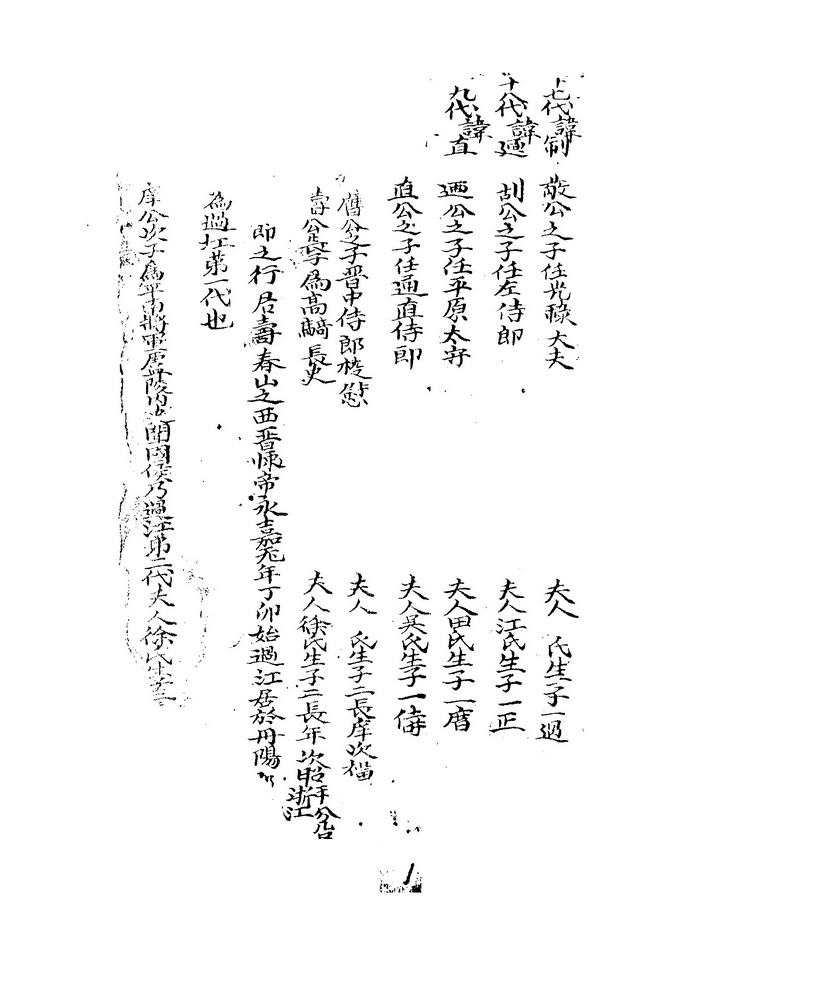 七代諱制 敬公之子任光祿大夫 夫人 氏生子一過
十代諱過 制公之子任左侍郎 夫人江氏生子一正
九代諱直 迺公之子任平原太守 夫人田氏生子一磨
直公之子任通直侍郎 夫人吳氏生子一
舊公之子晋中侍郎 夫人 氏生子二長庠次
壽公長子為高 長史 夫人徐氏生子二長年次昭年公居浙江
即之行居壽春山之西晋懷帝永嘉元年丁卯始過江居於丹陽
為過江第一代也
庠公次子為平南將軍 陵 開國侯乃過江第二代夫人徐氏生子三
1